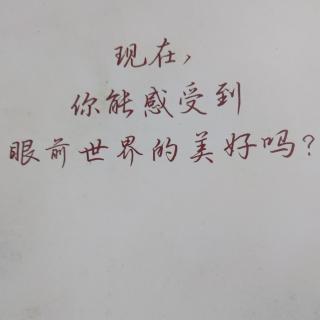 现在，
你能感受到
眼前世界的美好吗？